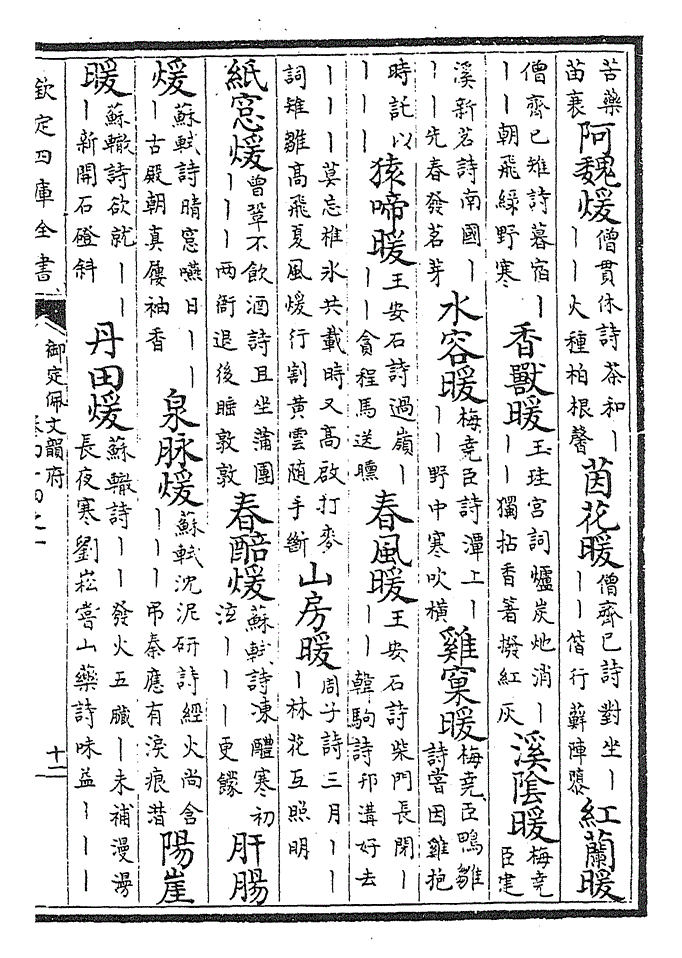 苦藥
苗裹
阿魏煖
僧貫休詩茶和丨
丨丨火種柏根馨
茵花暖
僧齊已詩對坐丨
丨丨偕行蘚陣㬥
紅蘭暖
僧齊已雉詩暮宿丨
丨丨朝飛綠野寒
香獸暖
王珪宫詞爐炭灺消丨
丨丨獨拈香箸撥紅灰
溪陰暖
梅堯
臣建
溪新茗詩南國丨
丨丨先春發茗芽
水容暖
梅堯臣詩潭上丨
丨丨野中寒吹橫
雞窠暖
梅堯臣鴨雛
詩嘗因雞抱
時託以
丨丨丨
猿啼暖
王安石詩過嶺丨
丨丨貪程馬送曛
春風暖
王安石詩柴門長閉丨
丨丨韓駒詩邗溝好去
丨丨丨莫忘椎氷共載時又高啟打麥
詞雉雛高飛夏風煖行割黄雲隨手斷
山房暖
周子詩三月丨丨
丨林花互照明
紙窓煖
曾鞏不飲酒詩且坐蒲團
丨丨丨兩衙退後睡敦敦
春醅煖
蘇軾詩凍醴寒初
泣丨丨丨更饛
肝腸
煖
蘇軾詩晴窓嚥日丨丨
丨古殿朝真屨袖香
泉脉煖
蘇軾沈泥研詩經火尚含
丨丨丨弔秦應有淚痕潜
陽崖
暖
蘇轍詩欲就丨丨
丨新開石磴斜
丹田煖
蘇轍詩丨丨發火五臟丨未補漫漫
長夜寒劉崧嘗山藥詩味益丨丨丨
欽定四庫全書
御定佩文韻府
十二